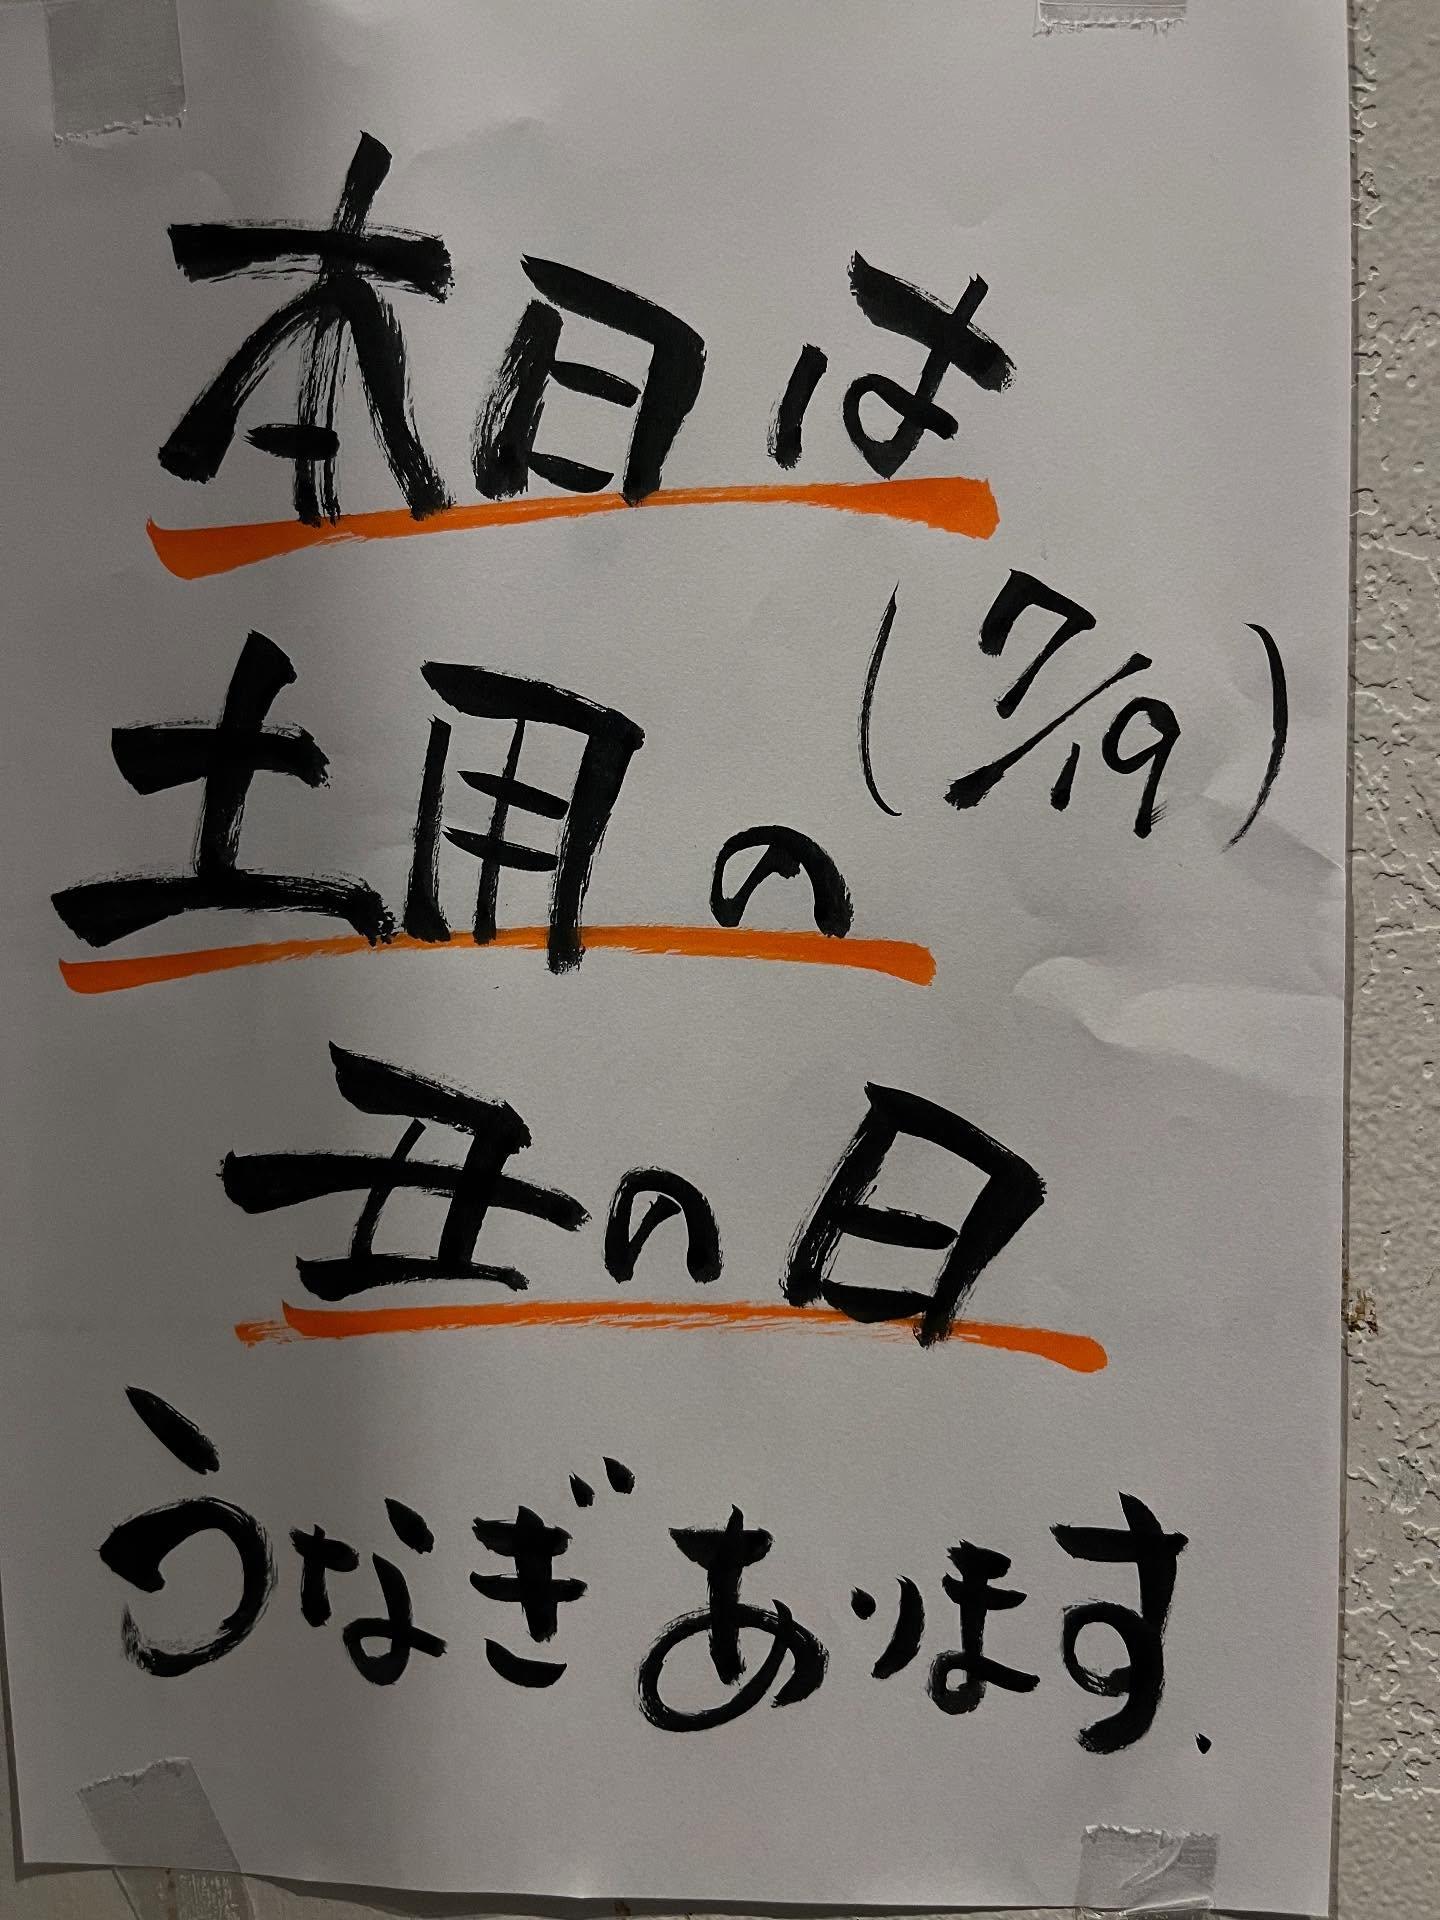 本日は
(7/19)
土用の
丑の日
うなぎあります.